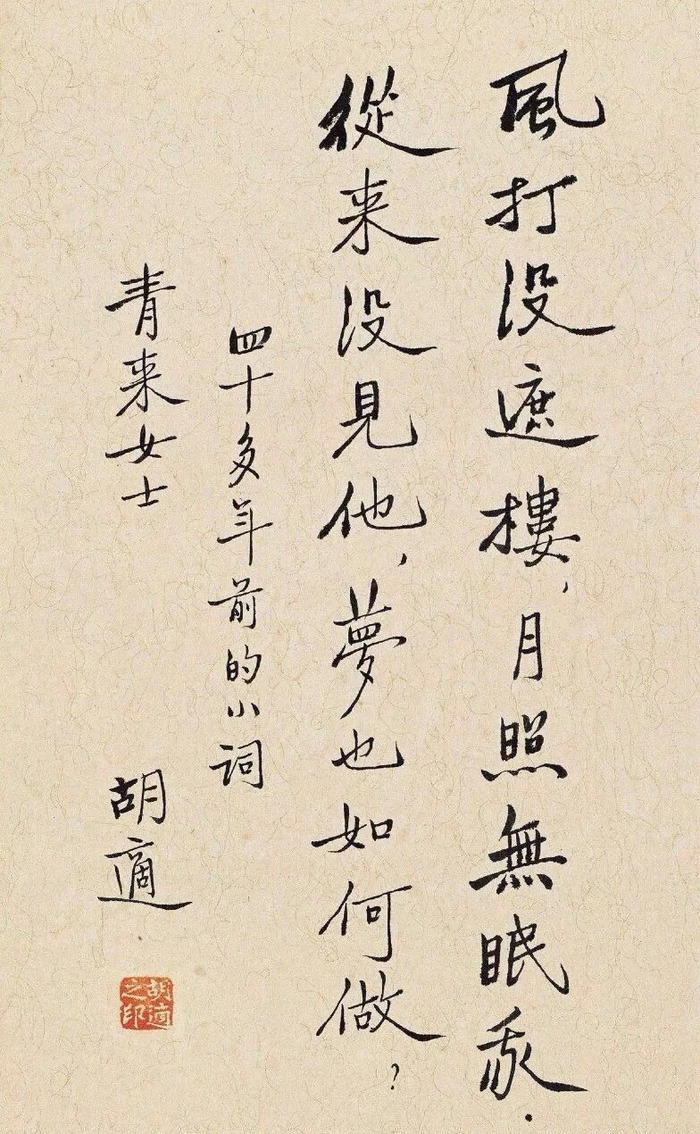 風打没遮樓，月照無眠我．
從来没見他，夢也如何做？
四十多年前的小词
青来女士
胡適
胡適之印